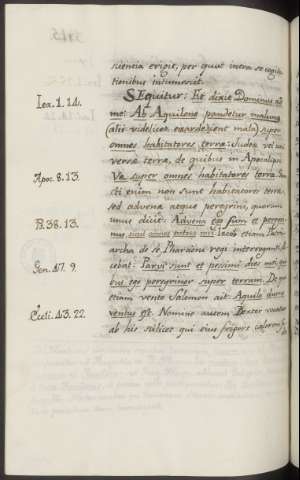 scientia erigit, per quat intra se cogita
tionibus intumescit.
Iea. 1. 14. SEquitur: Et dixit Dominus ad
me: Ab Aquilone pandetur malum
(alii videlicet exardescent mala) super
omnes habitatores terra: Judæa vel uni
versæ terra, de quibus in Apocalipsi
Apoc. 8. 13. Va super omnes habitatores terra. San
cti enim non sunt habitatores terra,
sed advenæ atque peregrini, quorum
unus dicit: Advena ego sum et peregri
Ps. 38. 13. nus sicut omnes patres mei Jacob etiam Patri
archa de se Pharaoni regi interroganti di
cebat: Parvi sunt et pessimi dies mei, qui
Gen. 47. 9. bus ego peregrinor super terram. De quo
etiam vento Salomon ait: Aquila durus
Eccli. 43. 22. ventus est. Nomine autem Dexter vocatur
ab his scilicet qui eius frigore calorem fi